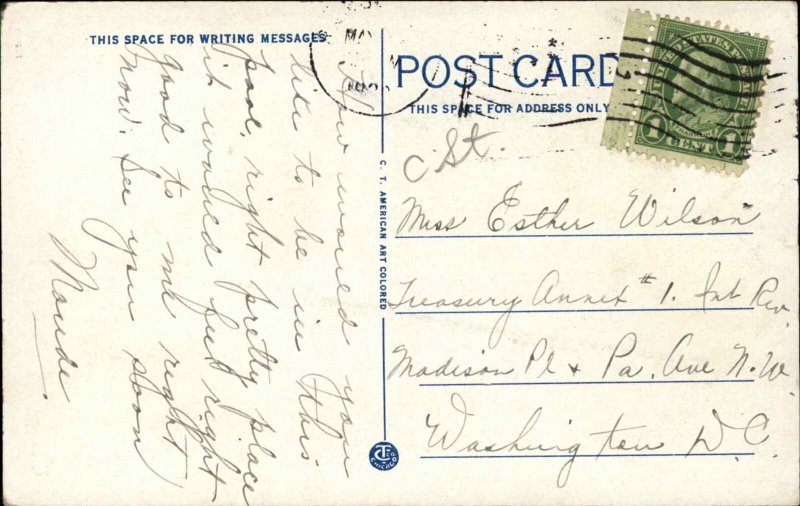 THIS SPACE FOR WRITING MESSAGES
POST CARD
THIS SPACE FOR ADDRESS ONLY
UNITED STATES POSTAGE
1 CENT 1
How would you
like to be in this
pool, right pretty place
it would feel right
good to me right
now. See you soon
Maude.
C. T. AMERICAN ART COLORED
C St.
Miss Esther Wilson
Treasury Annex #1. Int Rev.
Madison Pl & Pa. Ave N.W.
Washington D.C.
CHICAGO